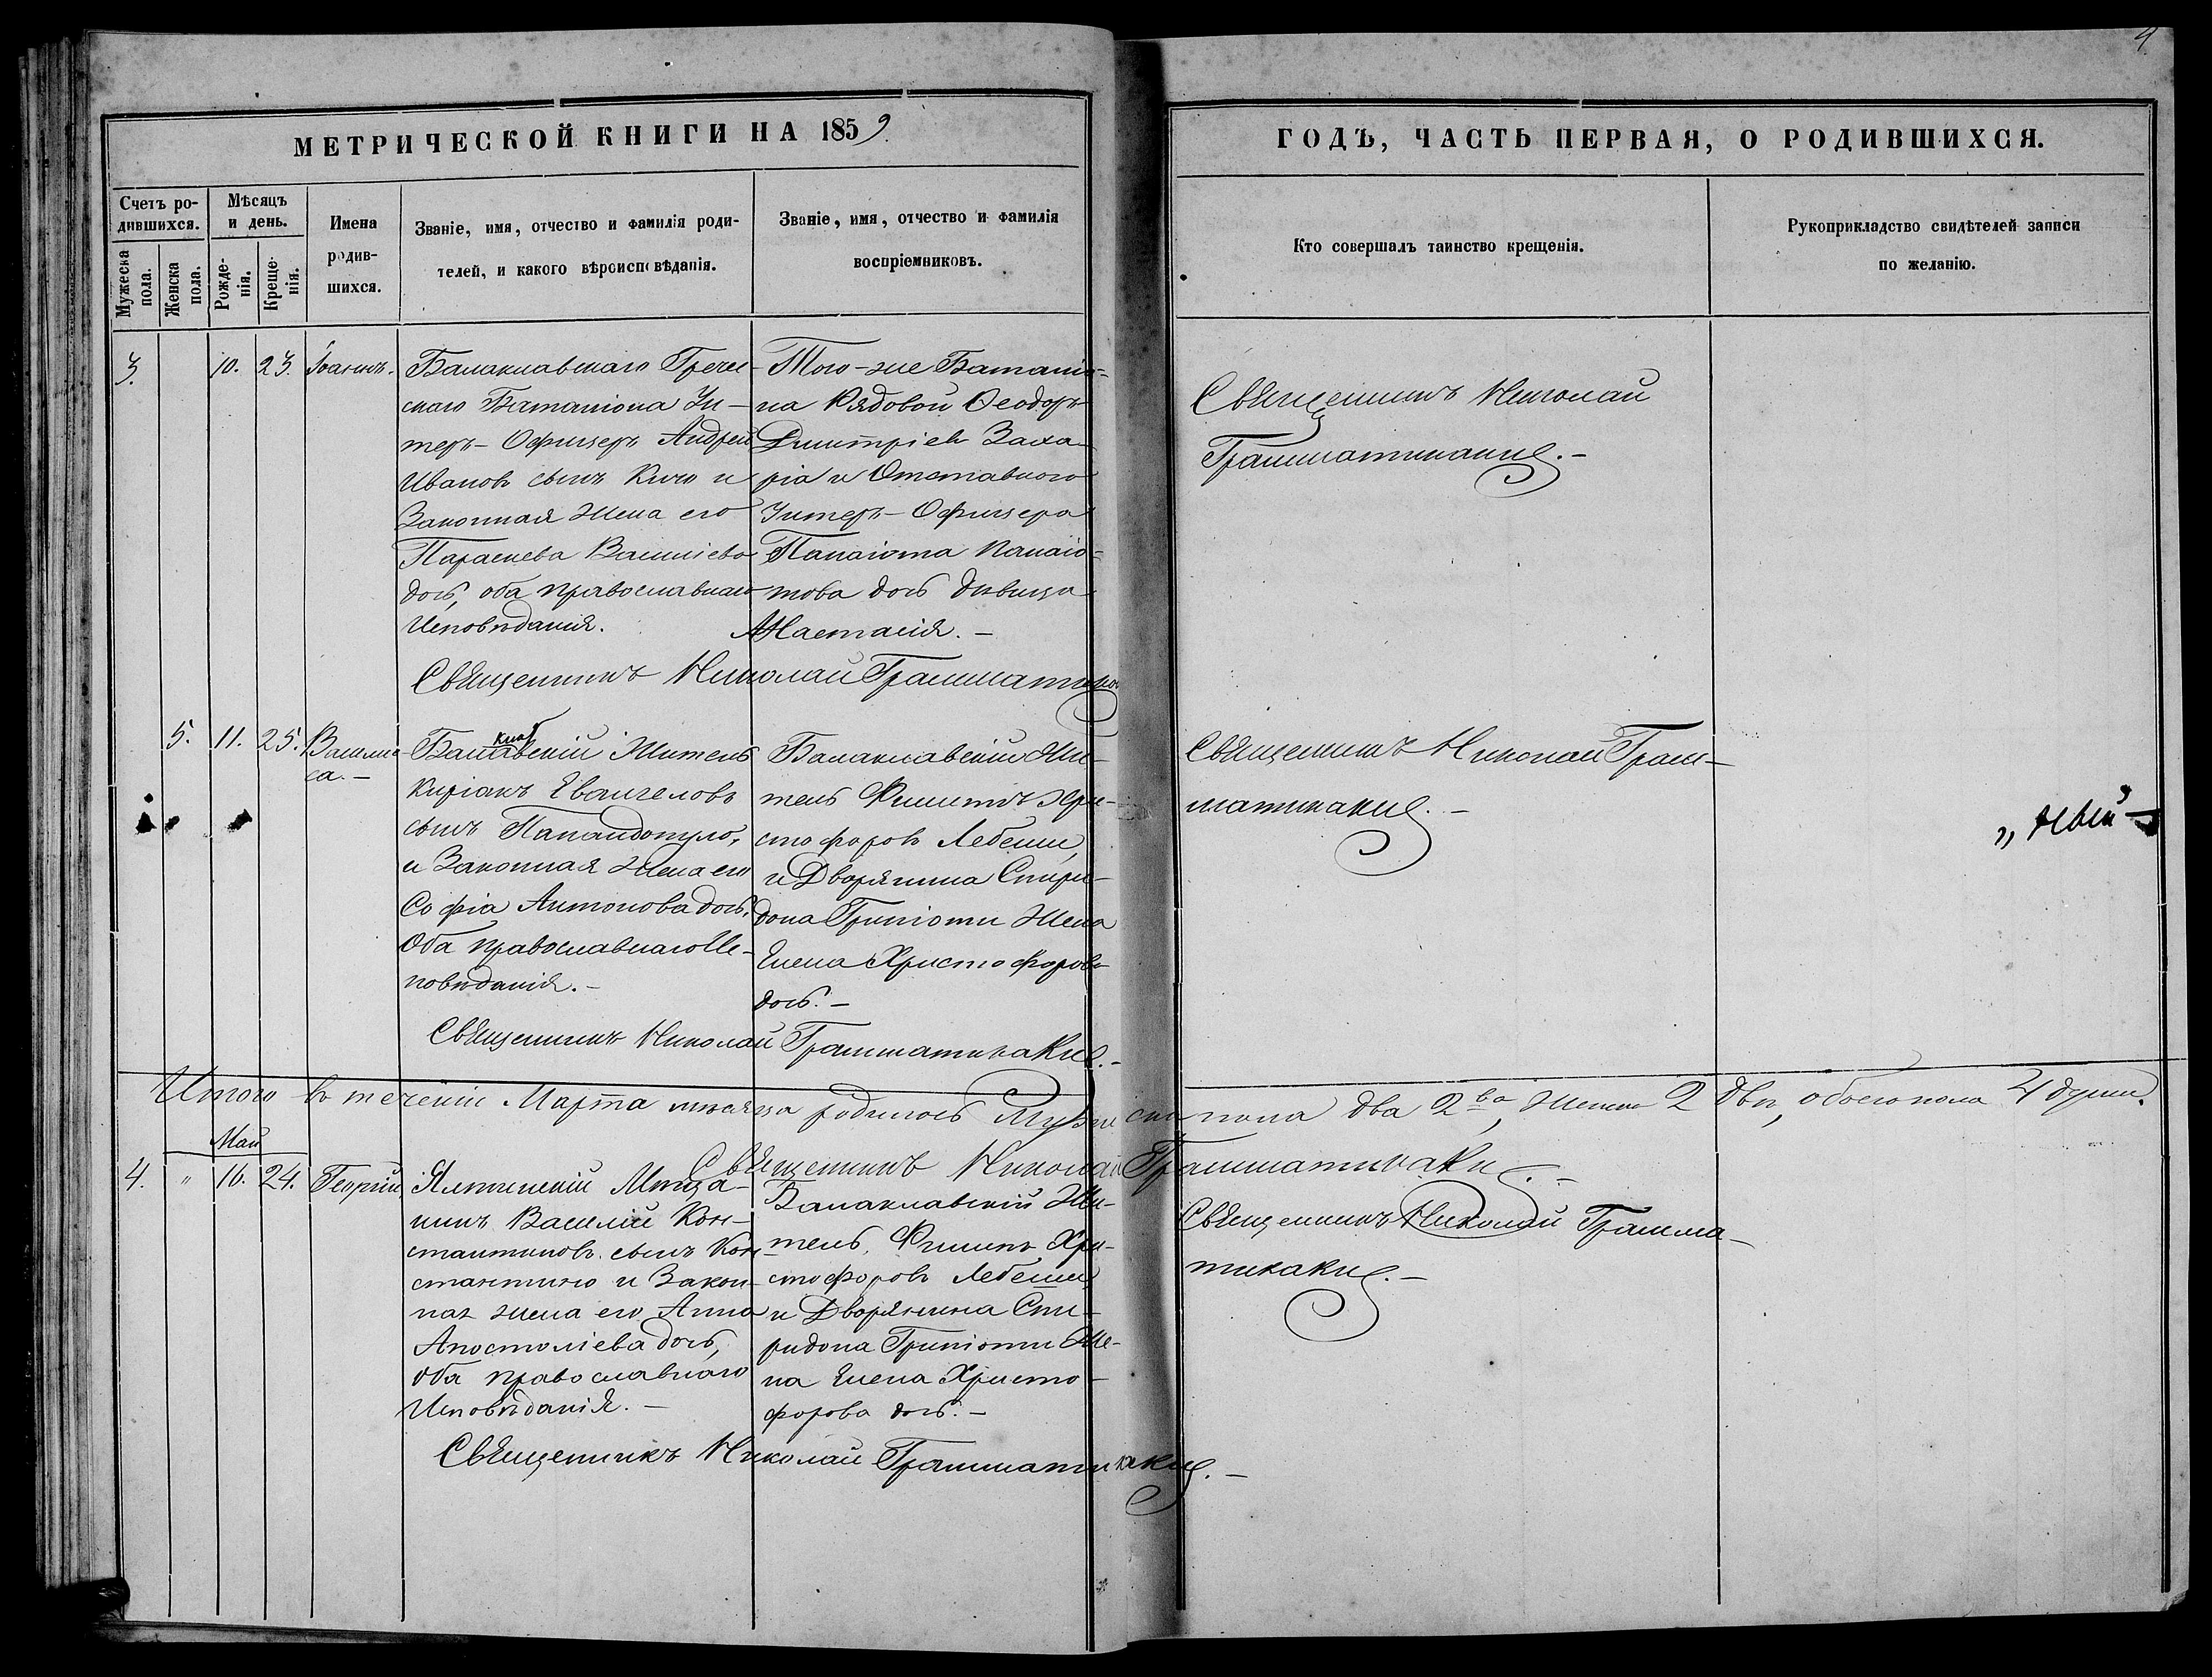 4
МЕТРИЧЕСКОЙ КНИГИ НА 1859.
ГОДЪ, ЧАСТЬ ПЕРВАЯ, О РОДИВШИХСЯ.
Счетъ ро-
дившихся.
Мужеска
пола.
Женска
пола.
Мѣсяцъ
и день.
Рожде-
нія.
Креще-
нія.
Имена
родив-
шихся.
Званіе, имя, отчество и фамилія роди-
телей, и какого вѣроисповѣданія.
Званіе, имя, отчество и фамилія
воспріемниковъ.
Кто совершалъ таинство крещенія.
Рукоприкладство свидѣтелей записи
по желанію.
3. 10. 23. Іоаннъ.
Балаклавскаго Грече-
скаго Баталіона Ун-
теръ-Офицеръ Андрей
Ивановъ сынъ Кичо и
Законная жена его
Параскева Василіева
дочь, оба православнаго
Исповѣданія.
Того-же Баталіо-
на Рядовой Ѳеодоръ
Дмитріевъ Заха-
ріа и Отставного
Унтеръ-Офицера
Панаіота Панаіо-
това дочь дѣвица
Анастасія.-
Священникъ Николай
Грамматикаки.-
Священникъ Николай Грамматикаки
5. 11. 25. Васили-
са.-
Балаклавскій Житель
Киріакъ Евангеловъ
сынъ Папандопуло,
и Законная жена его
Софіа Антонова дочь,
Оба православнаго Ис-
повѣданія.-
Балаклавскій Жи-
тель Филиппъ Хри-
стофоровъ Лебеши,
и Дворянина Спири-
дона Грипіоти Жена
Елена Христофорова
дочь.-
Священникъ Николай Грам-
матикаки.-
Священникъ Николай Грамматикаки.-
Итого въ теченіи Марта мѣсяца родилось Мужеска пола два 2ва, Женска 2 двѣ, обоего пола 4 души.
Священникъ Николай Грамматикаки.-
Май
4. " 16. 24. Георгій
Ялтинскій Мѣща-
нинъ Василій Кон-
стантиновъ сынъ Кон-
стантино и Закон-
ная жена его Анна
Апостоліева дочь,
Оба православнаго
Исповѣданія.-
Балаклавскій Жи-
тель Филиппъ Хри-
стофоровъ Лебеши
и Дворянина Спи-
ридона Грипіоти Же-
на Елена Христо-
форова дочь.-
Священникъ Николай Грамма-
тикаки.-
Священникъ Николай Грамматикаки.-